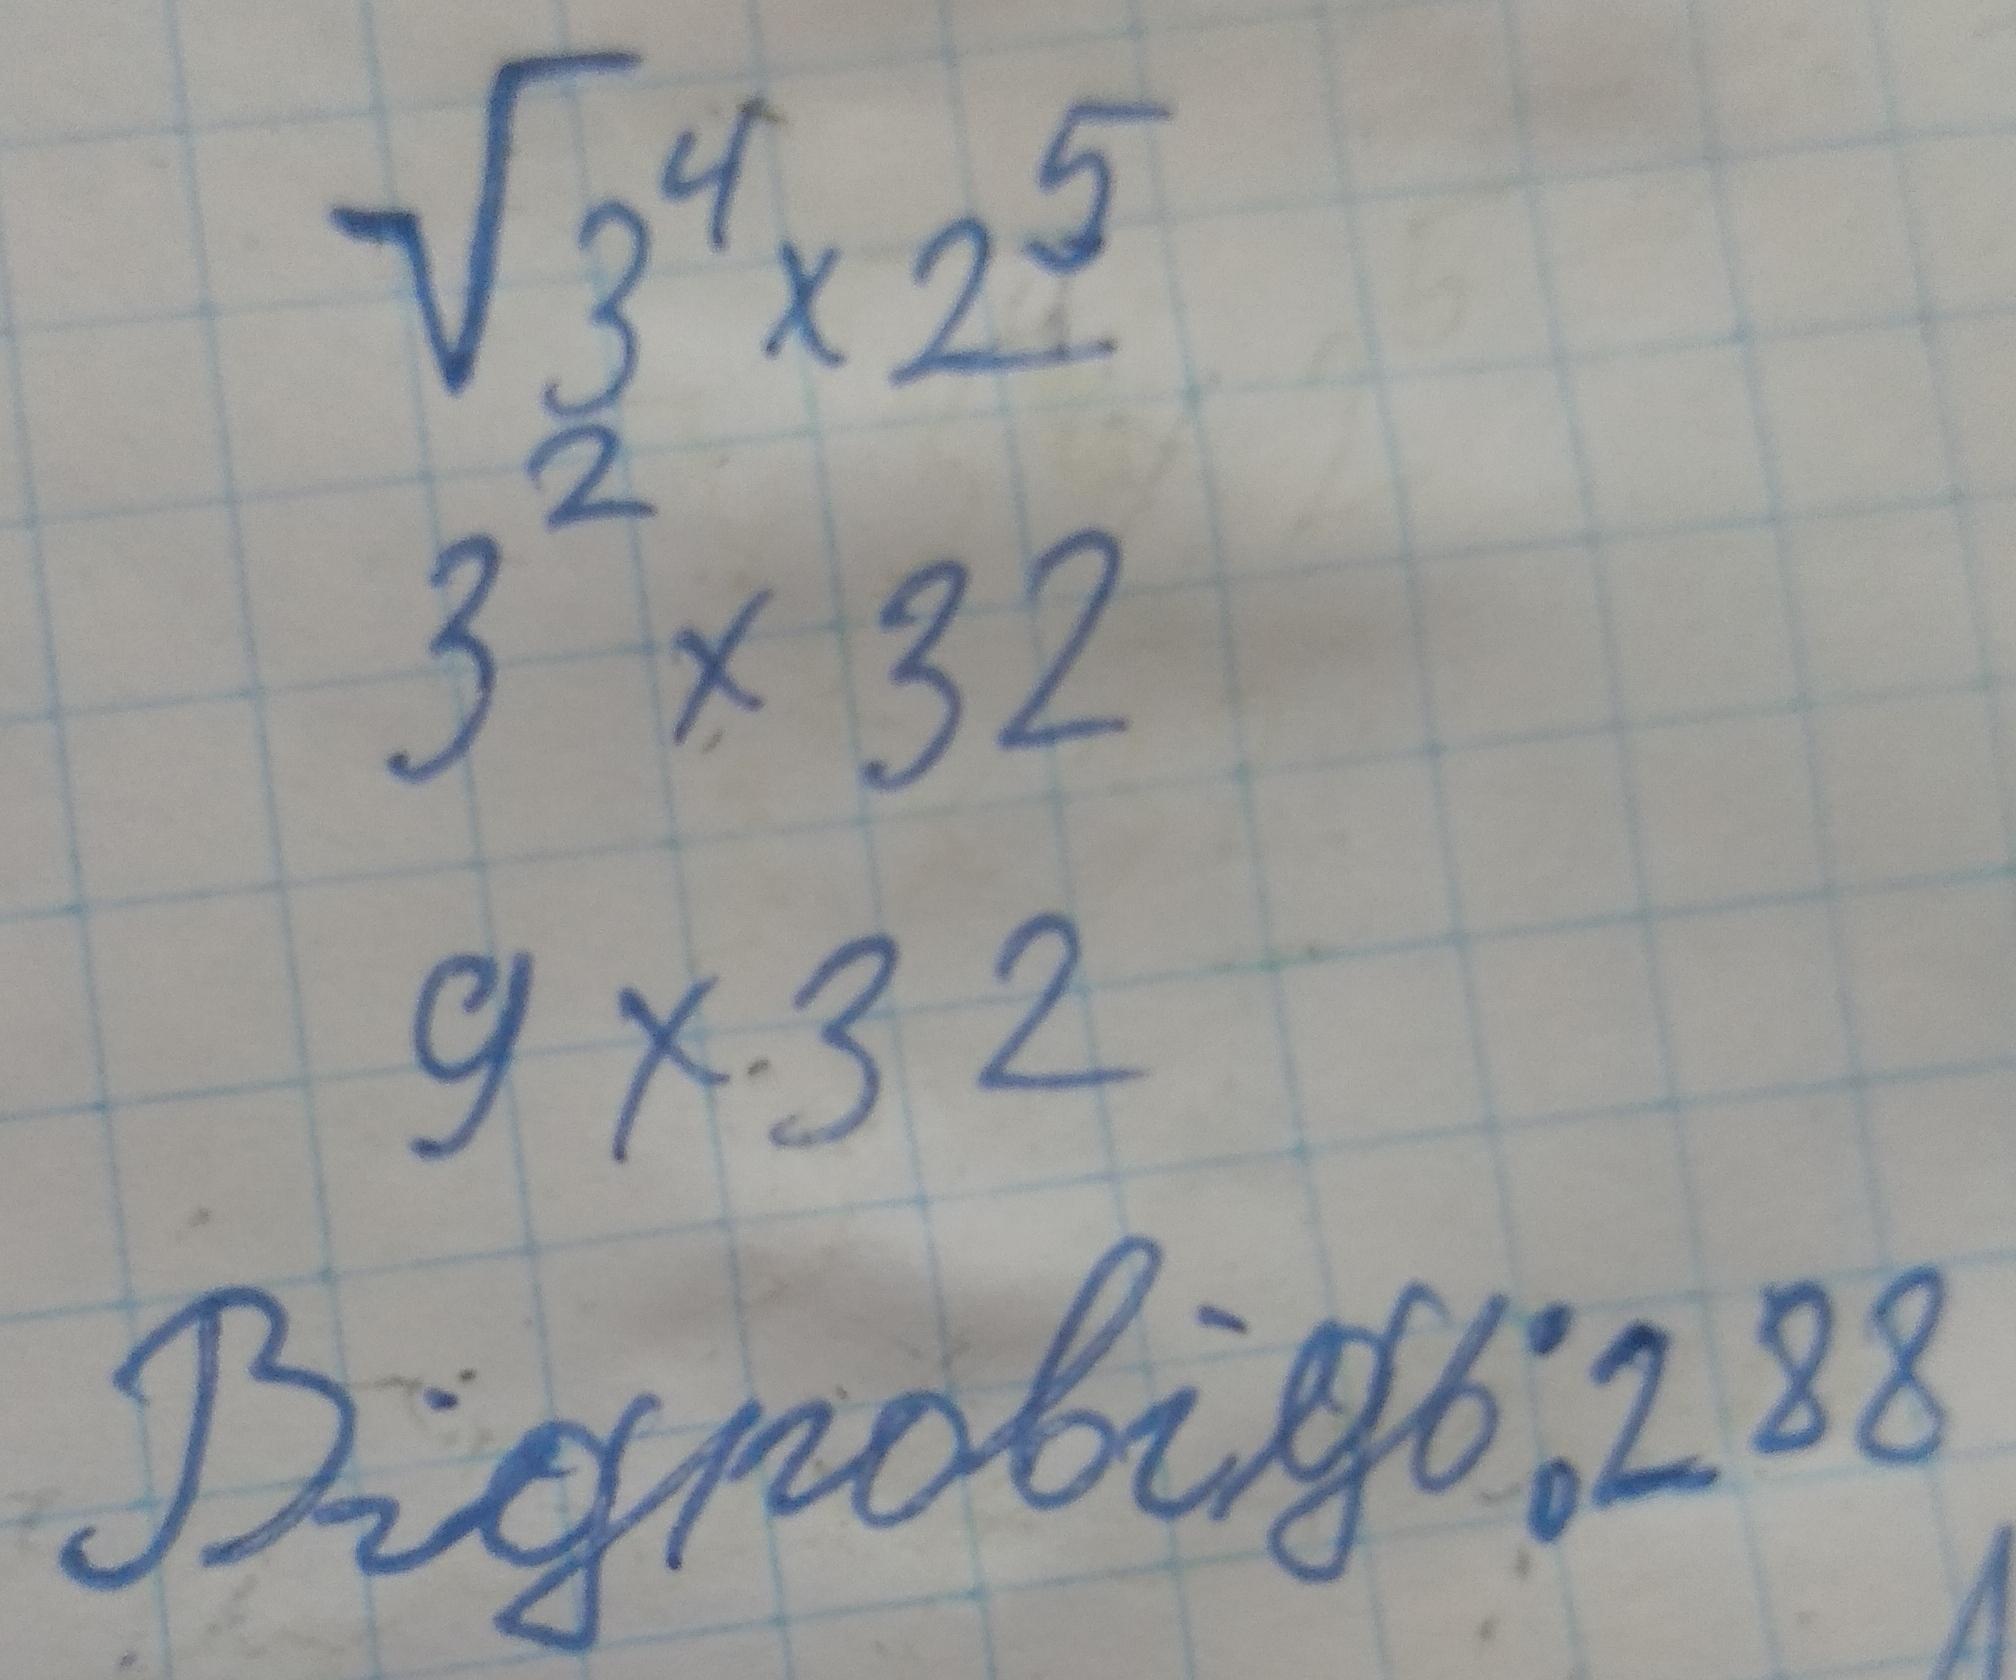 √3⁴ × 2⁵
3² × 32
9 × 32
Відповідь: 288